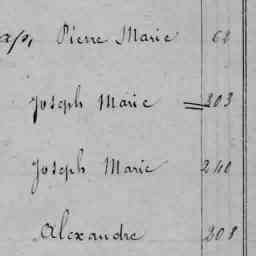 Pierre Marie 62
Joseph Marie = 203
Joseph Marie 240
Alexandre 208